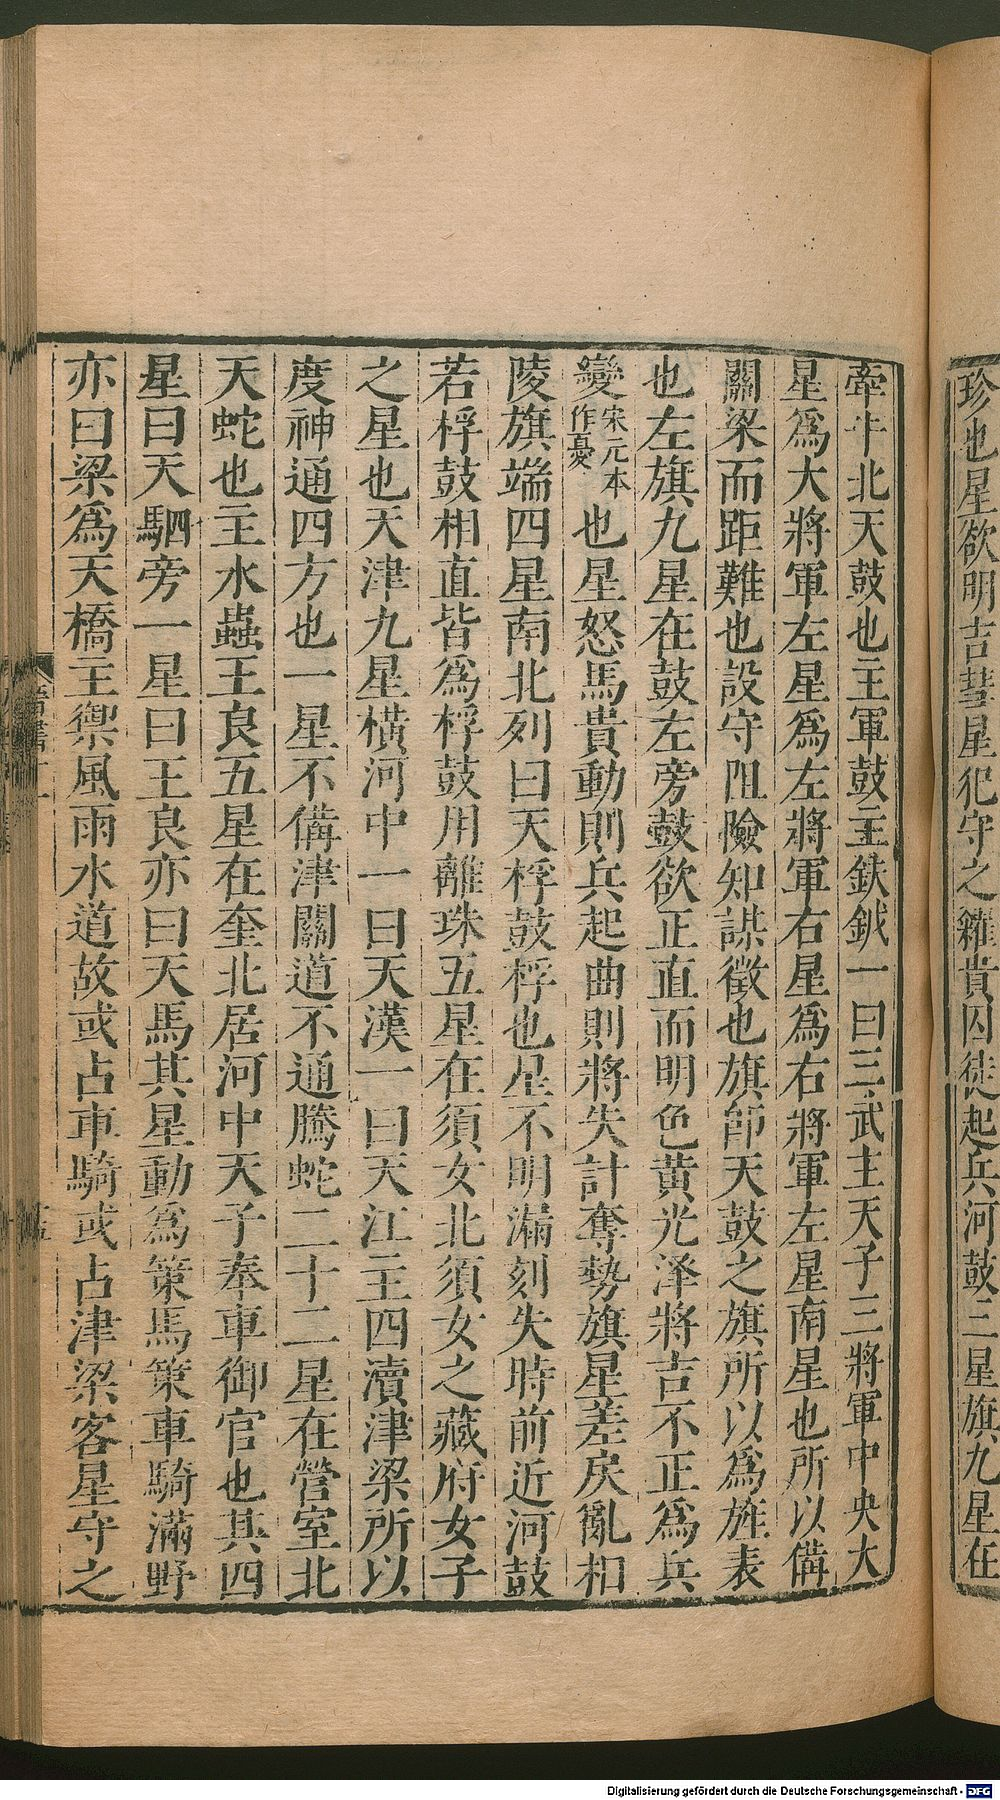 珍也星欲明吉彗星犯守之糴貴囚徒起兵河鼓三星旗九星在
牽牛北天鼓也主軍鼓主鈇鉞一曰三武主天子三將軍中央大
星爲大將軍左星爲左將軍右星爲右將軍左星南星也所以備
關梁而距難也設守阻險知謀徵也旗即天鼓之旗所以爲旌表
也左旗九星在鼓左旁鼓欲正直而明色黄光澤將吉不正爲兵
變宋元本作憂也星怒馬貴動則兵起曲則將失計奪勢旗星差戾亂相
陵旗端四星南北列曰天桴鼓桴也星不明漏刻失時前近河鼓
若桴鼓相直皆爲桴鼓用離珠五星在須女北須女之藏府女子
之星也天津九星橫河中一曰天漢一曰天江主四瀆津梁所以
度神通四方也一星不備津關道不通騰蛇二十二星在營室北
天蛇也主水蟲王良五星在奎北居河中天子奉車御官也其四
星曰天駟旁一星曰王良亦曰天馬其星動爲策馬策車騎滿野
亦曰梁爲天橋主禦風雨水道故或占車騎或占津梁客星守之
Digitalisierung gefördert durch die Deutsche Forschungsgemeinschaft - DFG